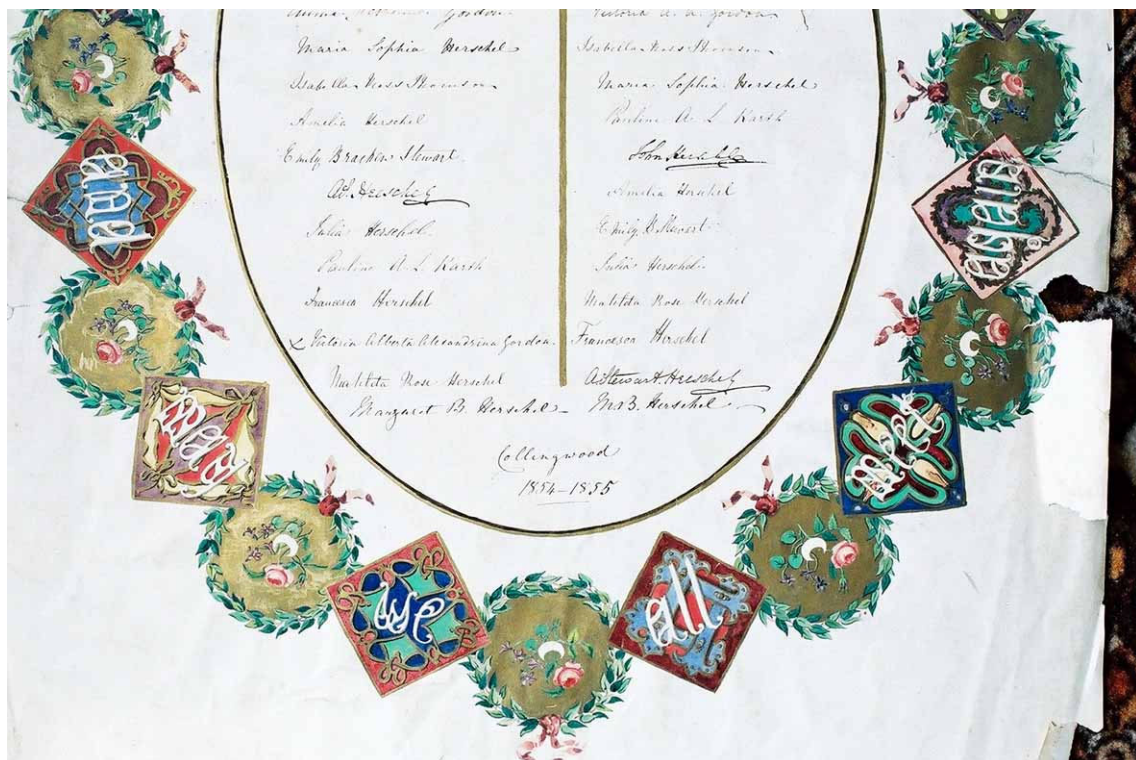 Gordon
Maria Sophia Herschel
Isabella Ross Thomson
Amelia Herschel
Emily Bracken Stewart.
AS. Herschel
Julia Herschel.
Pauline A. L. Karsh
Francesca Herschel
x Victoria Alberta Alexandrina Gordon.
Matilda Rose Herschel
Margaret B. Herschel
Victoria A. A. Gordon
Isabella Ross Thomson
Maria Sophia Herschel
Pauline A L Karsh
John
Amelia Herschel
Emily B Stewart
Julia Herschel.
Matilda Rose Herschel
Francesca Herschel
A Stewart Herschel
MB. Herschel
Collingwood
1854–1855
may
we
all
meet
again